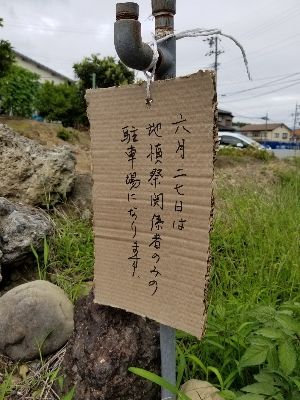 六月二七日は
地慎祭関係者のみの
駐車場になります。